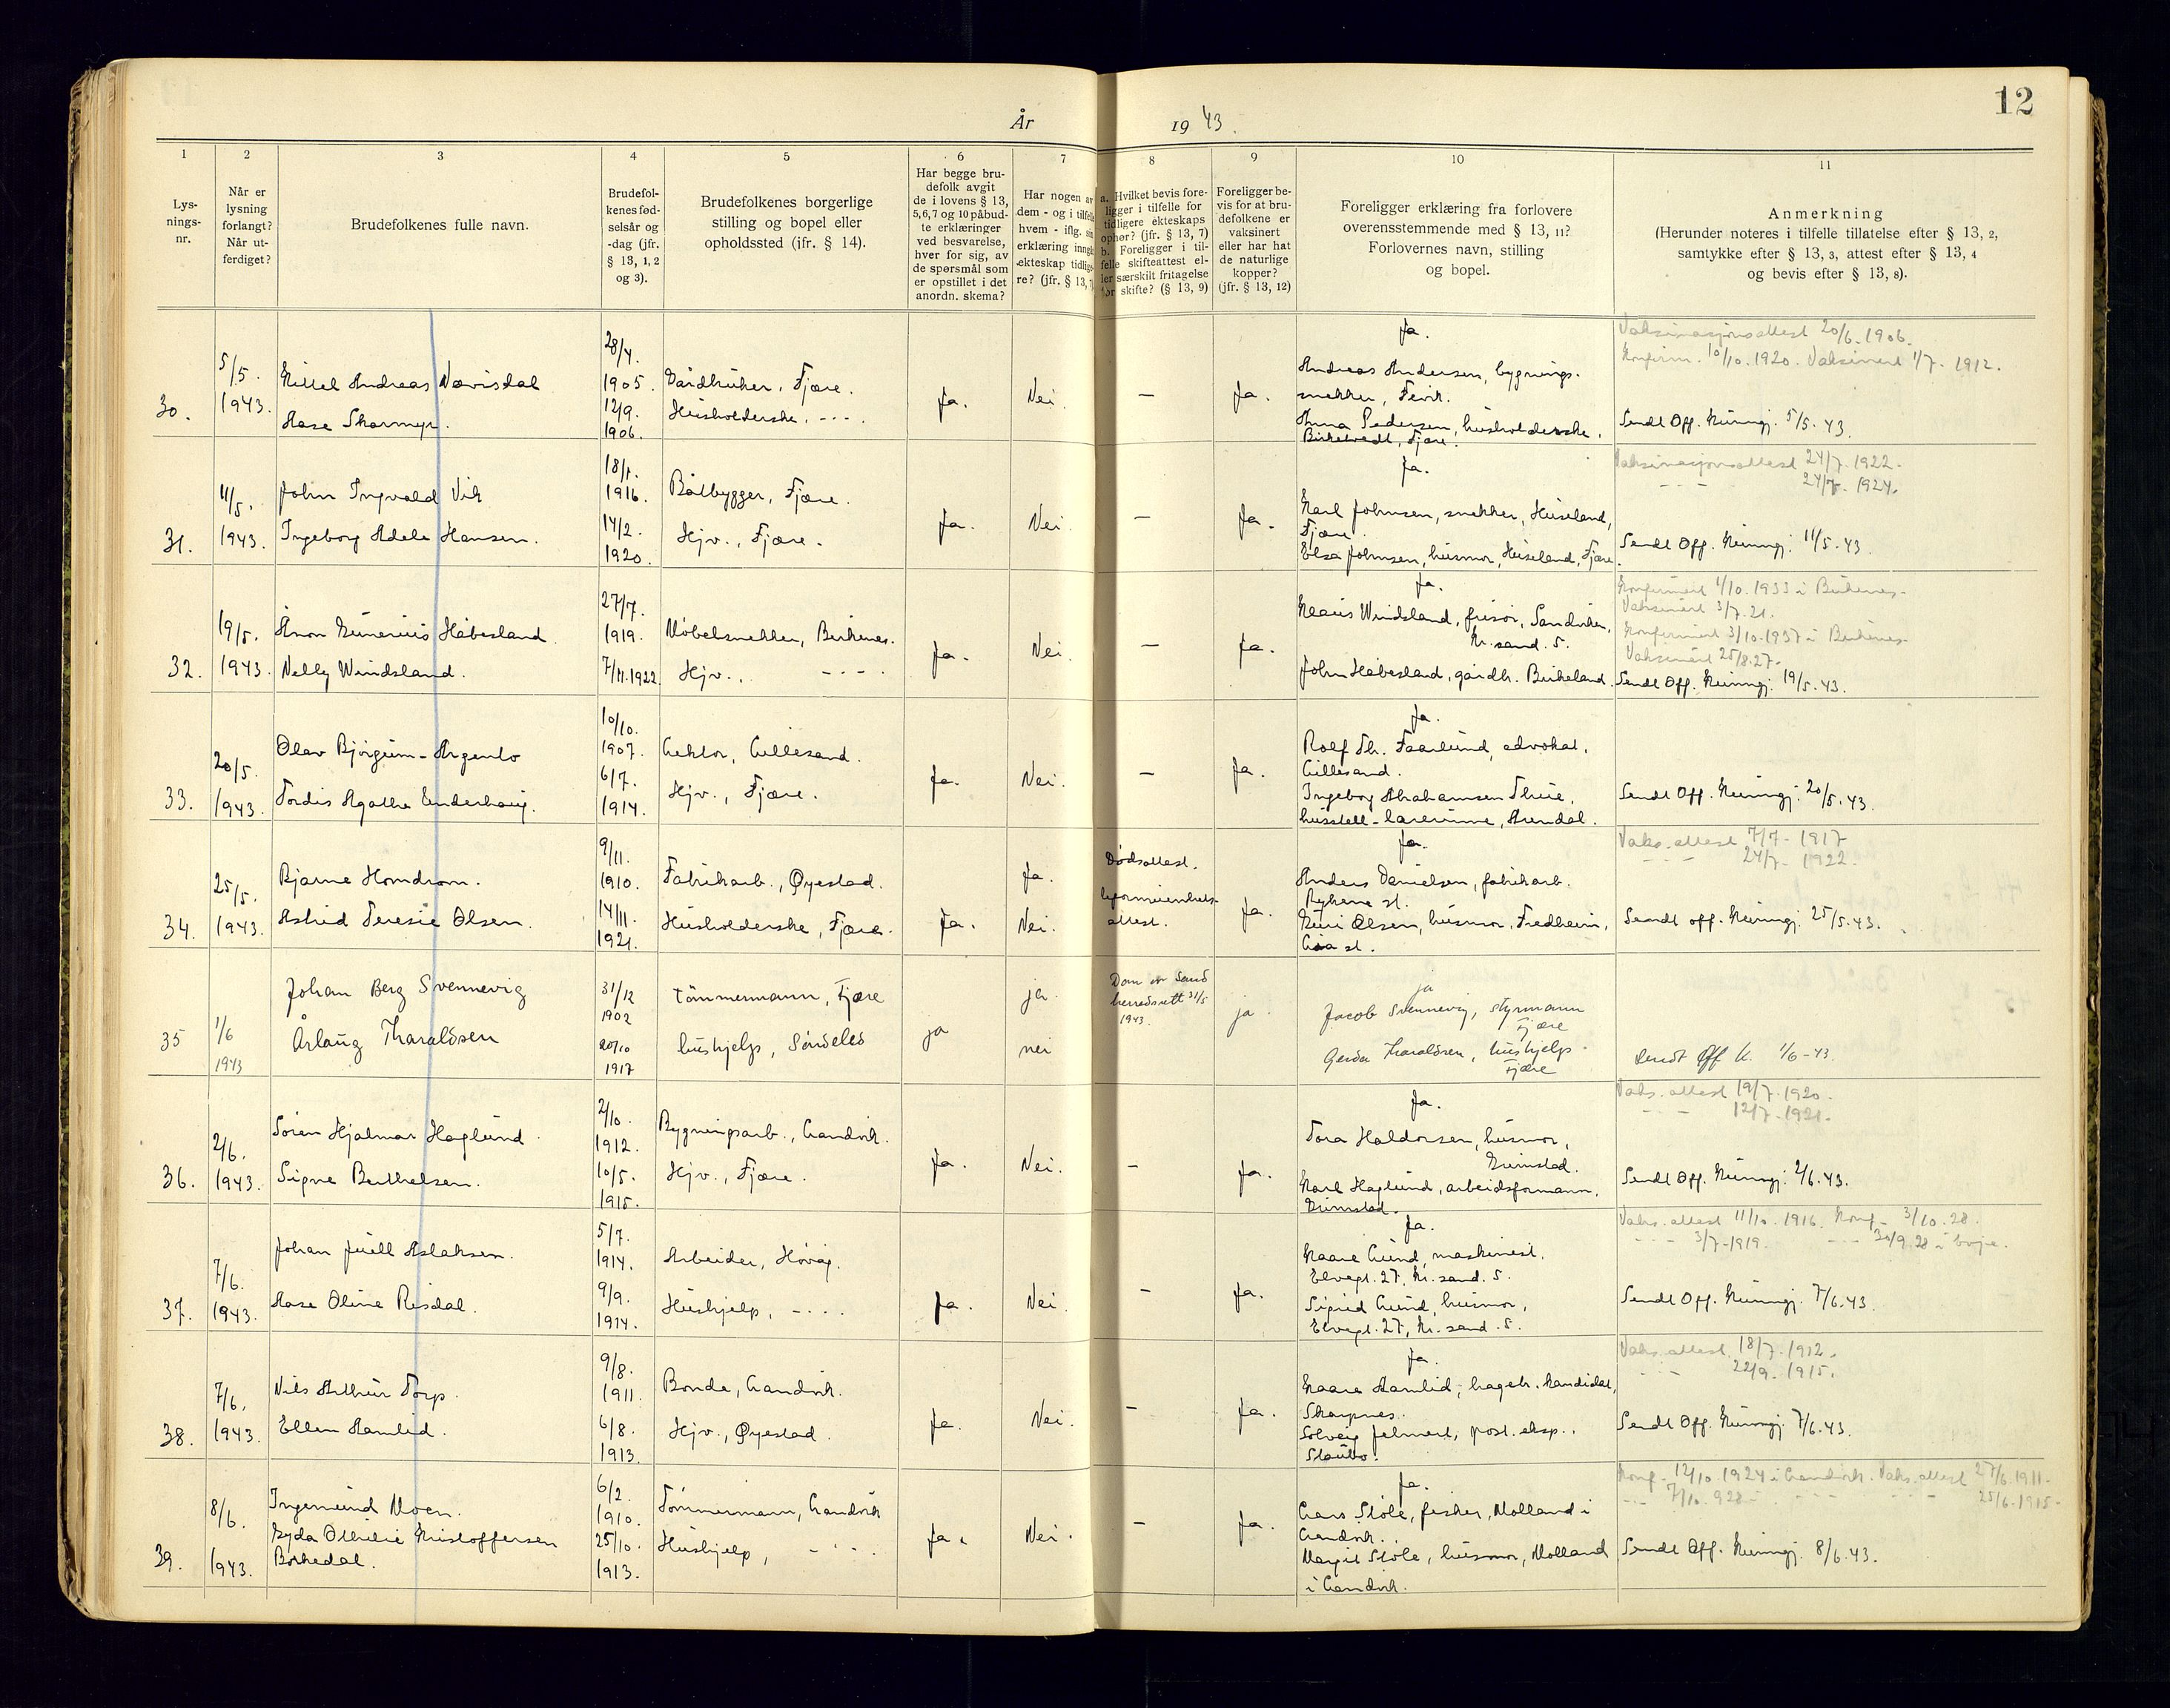 12
År 1943.
1 2 3 4 5 6 7 8 9 10 11
Lys-
nings-
nr.
Når er
lysning
forlangt?
Når ut-
ferdiget?
Brudefolkenes fulle navn.
Brudefol-
kenes fød-
selsår og
-dag (jfr.
§ 13, 1, 2
og 3).
Brudefolkenes borgerlige
stilling og bopel eller
opholdssted (jfr. § 14).
Har begge bru-
defolk avgit
de i lovens § 13,
5,6,7 og 10 påbud-
te erklæringer
ved besvarelse,
hver for sig, av
de spørsmål som
er opstillet i det
anordn. skema?
Har nogen av
dem - og i tilfelle
hvem - iflg. sin
erklæring inngått
ekteskap tidlig-
re? (jfr. § 13, 7)
a. Hvilket bevis fore-
ligger i tilfelle for
tidligere ekteskaps
ophør? (jfr. § 13, 7)
b. Foreligger i til-
felle skifteattest el-
ler særskilt fritagelse
for skifte? (§ 13, 9)
Foreligger be-
vis for at bru-
defolkene er
vaksinert
eller har hat
de naturlige
kopper?
(jfr. § 13, 12)
Foreligger erklæring fra forlovere
overensstemmende med § 13, 11?
Forlovernes navn, stilling
og bopel.
Anmerkning
(Herunder noteres i tilfelle tillatelse efter § 13, 2,
samtykke efter § 13, 3, attest efter § 13, 4
og bevis efter § 13, 8).
30.
5/5.
1943.
Kittel Andreas Nævisdal
Aase Skarmyr.
28/4.
1905.
12/9.
1906.
Gårdbruker, Fjære.
Husholderske, - - -
Ja.
Nei.
—
Ja.
Ja.
Andreas Andersen, bygnings-
snekker, Fevik.
Anna Pedersen, husholderske,
Birketvedt, Fjære.
Vaksinasjonsattest 20/6. 1906.
Konfirm. 10/10. 1920. Vaksinert 1/7. 1912.
Sendt Off. Kunngj. 5/5. 43.
31.
11/5.
1943.
John Ingvald Vik
Ingeborg Adele Hansen.
18/1.
1916.
14/2.
1920.
Båtbygger, Fjære.
Hjv., Fjære.
Ja.
Nei.
—
Ja.
Ja.
Karl Johnsen, snekker, Huseland,
Fjære.
Elsa Johnsen, husmor, Huseland, Fjære.
Vaksinasjonsattest 24/7. 1922.
- - - 24/7. 1924.
Sendt Off. Kunngj. 11/5. 43.
32.
19/5.
1943.
Aron Gunerius Håbesland
Nelly Windsland.
27/7.
1919.
7/11.1922
Møbelsnekker, Birkenes.
Hjv., - - -
Ja.
Nei.
—
Ja.
Ja.
Klaus Windsland, frisør, Sandviken,
Kr.sand. S.
John Håbesland, gårdb. Birkeland.
Konfirmert 1/10. 1933 i Birkenes.
Vaksinert 3/7. 21.
Konfirmert 3/10. 1937 i Birkenes.
Vaksinert 25/8. 27.
Sendt Off. Kunngj. 19/5. 43.
33.
20/5.
1943.
Olav Bjørgum-Argento
Tordis Agathe Gunderhaug.
10/10.
1907.
6/7.
1914.
Lektor, Lillesand.
Hjv., Fjære.
Ja.
Nei.
—
Ja.
Ja.
Rolf Th. Faarlund, advokat,
Lillesand.
Ingeborg Abrahamsen Thue,
husstell-lærerinne, Arendal.
Sendt Off. Kunngj. 20/5. 43.
34.
25/5.
1943.
Bjarne Homdrom.
Astrid Teresie Olsen.
9/11.
1910.
14/11.
1921.
Fabrikarb., Øyestad.
Husholderske, Fjære.
Ja.
Ja.
Nei.
Dødsattest.
Uformuenhets-
attest.
Ja.
Ja.
Anders Danielsen, fabrikarb.
Rykene st.
Guri Olsen, husmor, Fredheim,
Lia st.
Vaks. attest 7/7 - 1917
- - - 24/7 - 1922.
Sendt off. Kunngj. 25/5. 43.
35
1/6
1943
Johan Berg Svennevig
Årlaug Tharaldsen
31/12
1902
20/10
1917
tømmermann, Fjære
hushjelp, Søndeled
ja
ja.
nei
Dom av Sand
herredsrett 31/5
1943.
ja
ja
Jacob Svennevig, styrmann
Fjære
Gerda Tharaldsen, hushjelp
Fjære
sendt Off K. 1/6 - 43.
36.
2/6.
1943.
Søren Hjalmar Haglund.
Signe Berthelsen.
2/10.
1912.
10/5.
1915.
Bygningsarb., Landvik.
Hjv., Fjære.
Ja.
Nei.
—
Ja.
Ja.
Tora Haldorsen, husmor,
Grimstad.
Karl Haglund, arbeidsformann,
Grimstad.
Vaks. attest 19/7. 1920.
- - - 12/7. 1921.
Sendt Off. Kunngj. 2/6. 43.
37.
7/6.
1943.
Johan Juell Aslaksen.
Aase Oline Risdal.
5/7.
1914.
9/9.
1914.
Arbeider, Høvåg.
Hushjelp, - - -
Ja.
Nei.
—
Ja.
Ja.
Kaare Lund, maskinist,
Elvegt. 27, Kr.sand. S.
Sigrid Lund, husmor,
Elvegt. 27, Kr. sand. S.
Vaks. attest 11/10. 1916. Konf. 3/10. 28.
- - - 3/7-1919. - - - 30/9. 28 i
Sendt Off. Kunngj. 7/6. 43.
38.
7/6.
1943.
Nils Arthur Torp.
Ellen Aamlid.
9/8.
1911.
6/8.
1913.
Bonde, Landvik.
Hjv., Øyestad.
Ja.
Nei.
—
Ja.
Ja.
Kaare Aamlid, hagebr. kandidat,
Skarpnes.
Solveig Jelmert, post.eksp.,
Staubo.
Vaks. attest 18/7. 1912.
- - - 22/9. 1915.
Sendt Off. Kunngj. 7/6. 43.
39.
8/6.
1943.
Ingemund Moen.
Gyda Othilie Kristoffersen
Borkedal.
6/2.
1910.
25/10.
1913.
Tømmermann, Landvik
Hushjelp, - - -
Ja.
Nei.
—
Ja.
Ja.
Lars Støle, fisker, Molland i
Landvik.
Margit Støle, husmor, Molland
i Landvik.
Konf. 12/10. 1924 i Landvik. Vaks. attest 27/6. 1911.
- - - 7/10. 928 - - - - 25/6. 1915.
Sendt Off. Kunngj. 8/6. 43.